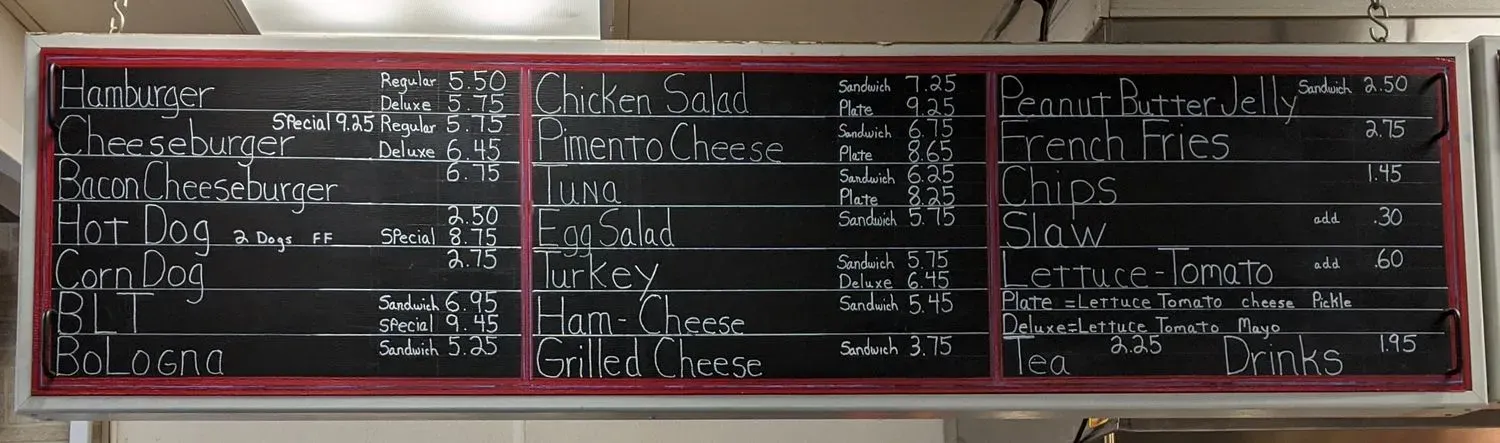 Hamburger Regular 5.50
Deluxe 5.75
Cheeseburger Special 9.25 Regular 5.75
Deluxe 6.45
Bacon Cheeseburger 6.75
Hot Dog 2.50
2 Dogs FF Special 8.75
Corn Dog 2.75
BLT Sandwich 6.95
Special 9.45
Bologna Sandwich 5.25
Chicken Salad Sandwich 7.25
Plate 9.25
Pimento Cheese Sandwich 6.75
Plate 8.65
Tuna Sandwich 6.25
Plate 8.25
Egg Salad Sandwich 5.75
Turkey Sandwich 5.75
Deluxe 6.45
Ham-Cheese Sandwich 5.45
Grilled Cheese Sandwich 3.75
Peanut Butter Jelly Sandwich 2.50
French Fries 2.75
Chips 1.45
Slaw add .30
Lettuce-Tomato add .60
Plate =Lettuce Tomato cheese Pickle
Deluxe=Lettuce Tomato Mayo
Tea 2.25 Drinks 1.95